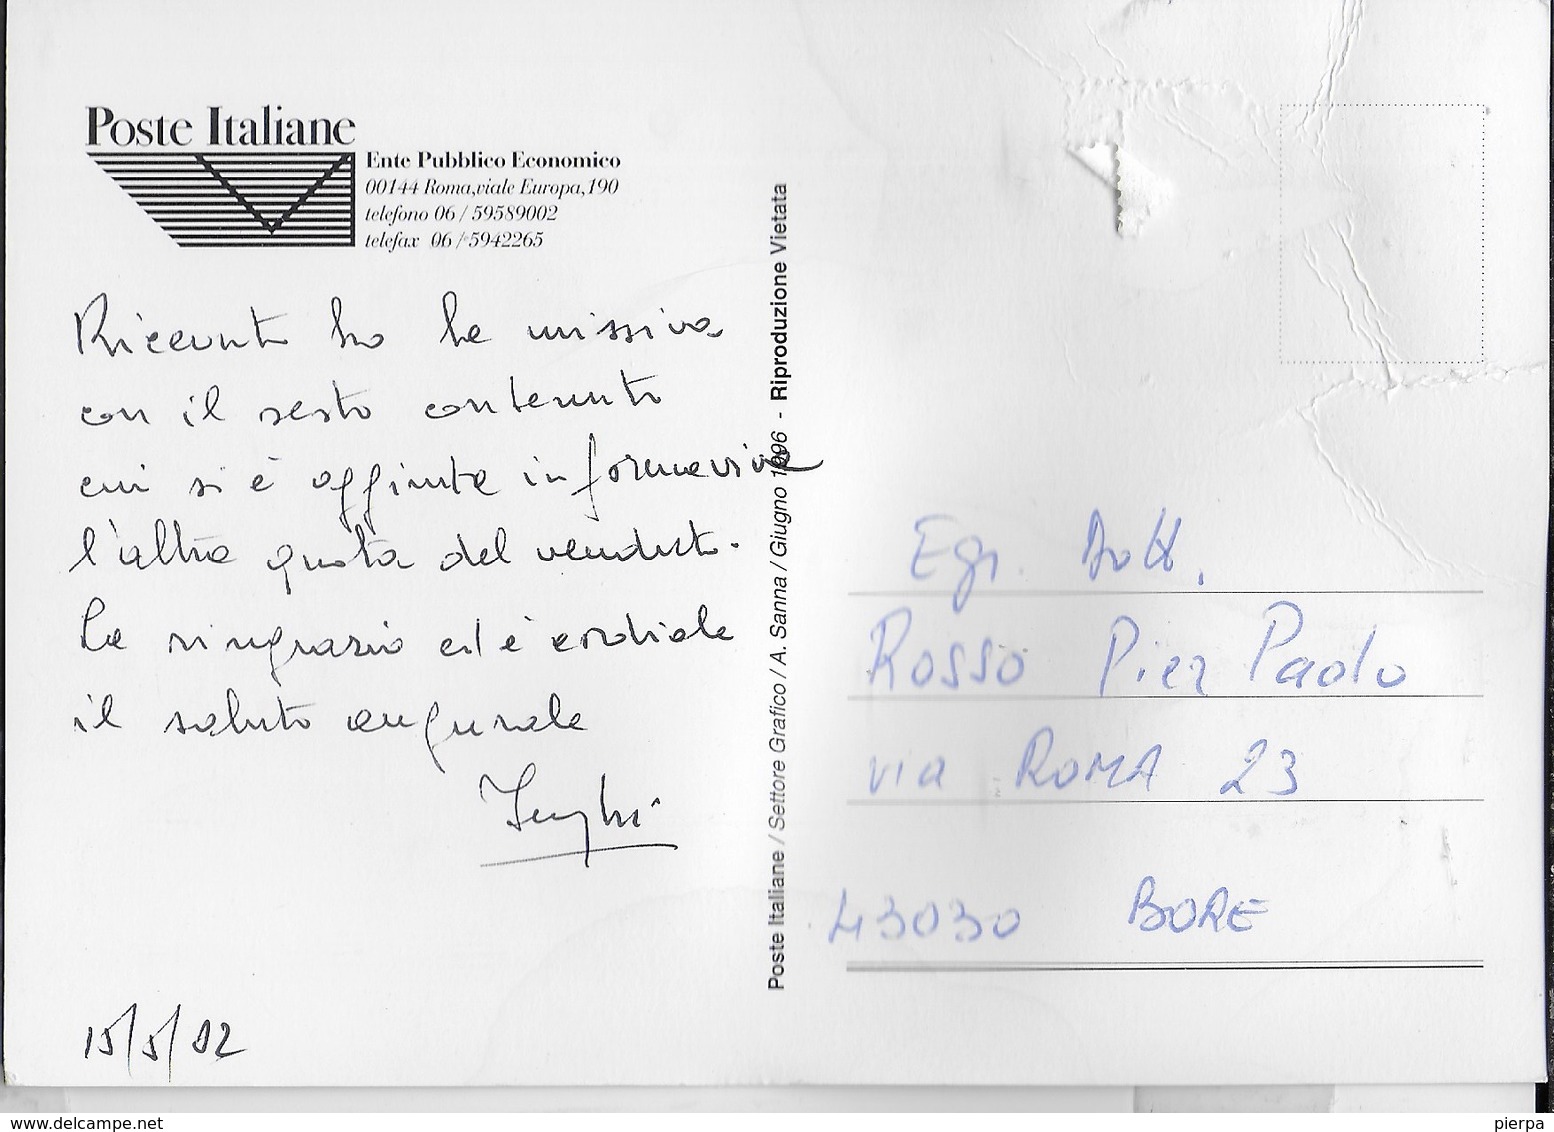 Poste Italiane
Ente Pubblico Economico
00144 Roma, viale Europa, 190
telefono 06 / 59589002
telefax 06 / 5942265
Ricevuto ho la missiva
con il resto contenuto
cui si è aggiunta in forma viva
l'altra quota del venduto.
La ringrazio ed è cordiale
il saluto augurale
15/5/02
Poste Italiane / Settore Grafico / A. Sanna / Giugno 1996 - Riproduzione Vietata
Egr. Dott.
Rosso Pier Paolo
via ROMA 23
43030 BORE
www.delcampe.net
pierpa